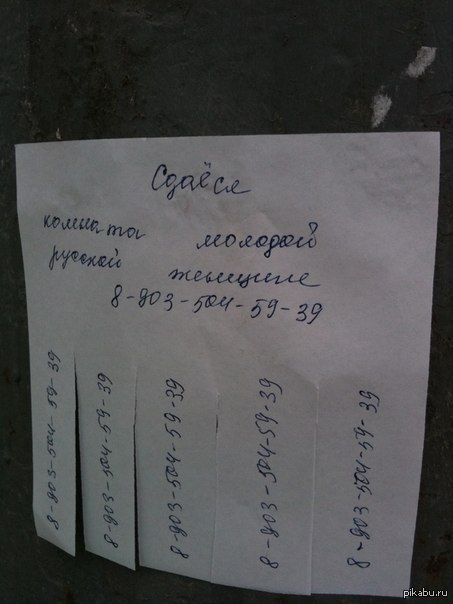 Сдаёся
комната молодой
русской женщине
8-903-504-59-39
8-903-504-59-39
8-903-504-59-39
8-903-504-59-39
8-903-504-59-39
8-903-504-59-39
pikabu.ru